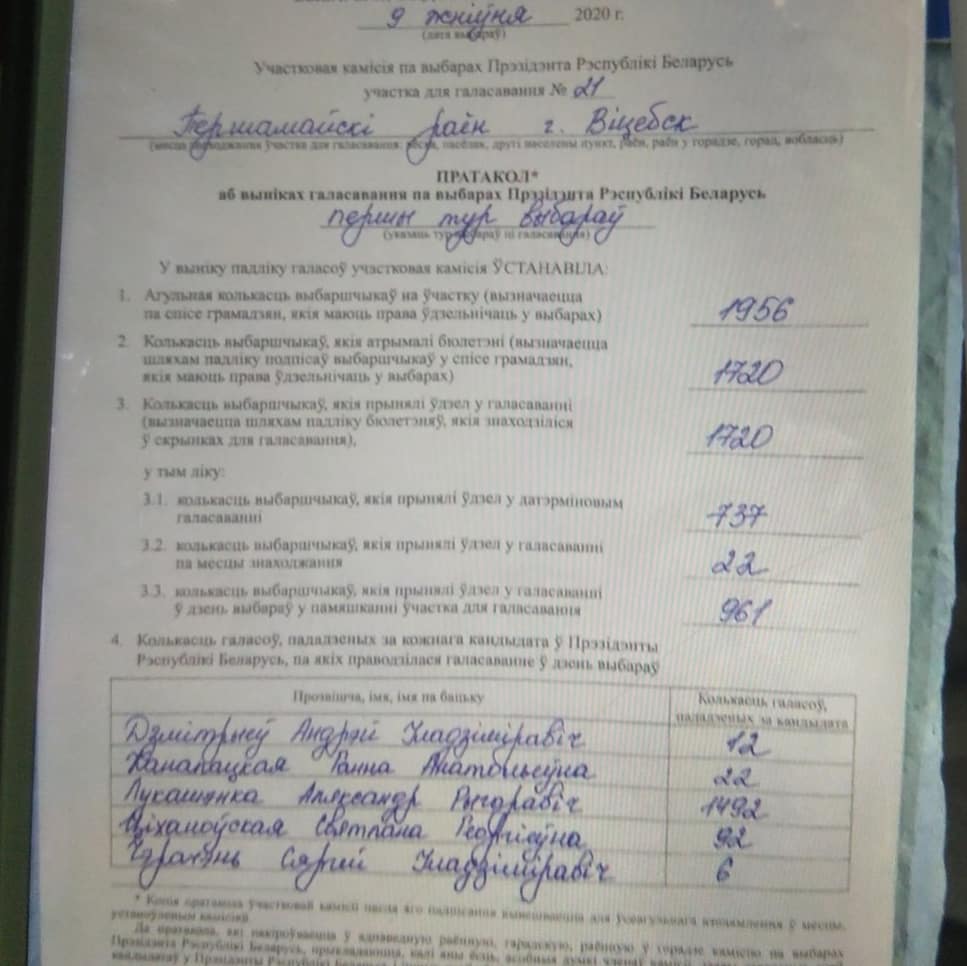 9 жніўня 2020 г.
(дата выбараў)
Участковая камісія па выбарах Прэзідэнта Рэспублікі Беларусь
участка для галасавання № 21
Першамайскі раён г. Віцебск
(месца знаходжання ўчастка для галасавання: вёска, пасёлак, другі населены пункт, раён, раён у горадзе, горад, вобласць)
ПРАТАКОЛ*
аб выніках галасавання па выбарах Прэзідэнта Рэспублікі Беларусь
першы тур выбараў
(указаць тур выбараў ці галасавання)
У выніку падліку галасоў участковая камісія ЎСТАНАВІЛА:
1. Агульная колькасць выбаршчыкаў на ўчастку (вызначаецца
па спісе грамадзян, якія маюць права ўдзельнічаць у выбарах) 1956
2. Колькасць выбаршчыкаў, якія атрымалі бюлетэні (вызначаецца
шляхам падліку подпісаў выбаршчыкаў у спісе грамадзян,
якія маюць права ўдзельнічаць у выбарах) 1720
3. Колькасць выбаршчыкаў, якія прынялі ўдзел у галасаванні
(вызначаецца шляхам падліку бюлетэняў, якія знаходзіліся
ў скрынках для галасавання), 1720
у тым ліку:
3.1. колькасць выбаршчыкаў, якія прынялі ўдзел у датэрміновым
галасаванні 737
3.2. колькасць выбаршчыкаў, якія прынялі ўдзел у галасаванні
па месцы знаходжання 22
3.3. колькасць выбаршчыкаў, якія прынялі ўдзел у галасаванні
ў дзень выбараў у памяшканні ўчастка для галасавання 961
4. Колькасць галасоў, пададзеных за кожнага кандыдата ў Прэзідэнты
Рэспублікі Беларусь, па якіх праводзілася галасаванне ў дзень выбараў
Прозвішча, імя, імя па бацьку Колькасць галасоў,
пададзеных за кандыдата
Дзмітрыеў Андрэй Уладзіміравіч 12
Канапацкая Ганна Анатольеўна 22
Лукашэнка Аляксандр Рыгоравіч 1492
Ціханоўская Святлана Георгіеўна 92
Чэрачэнь Сяргей Уладзіміравіч 6
* Копія пратакола ўчастковай камісіі пасля яго падпісання вывешваецца для ўсеагульнага азнаямлення ў месцы,
устаноўленым камісіяй.
Да пратакола, які накіроўваецца ў адпаведную раённую, гарадскую, раённую ў горадзе камісію па выбарах
Прэзідэнта Рэспублікі Беларусь, прыкладаюцца, калі яны ёсць, асобныя думкі членаў камісіі,